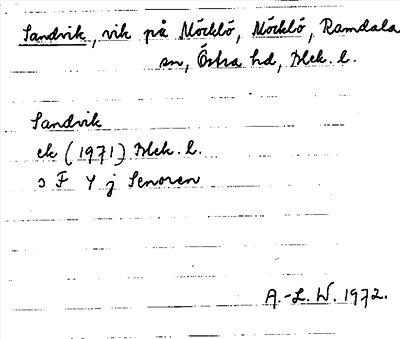 Sandvik, vik på Möcklö, Möcklö, Ramdala
sn, Östra hd, Blek. l.
Sandvik
ek (1971) Blek. l.
ɔ F 4 j Senoren
A.-L. W. 1972.